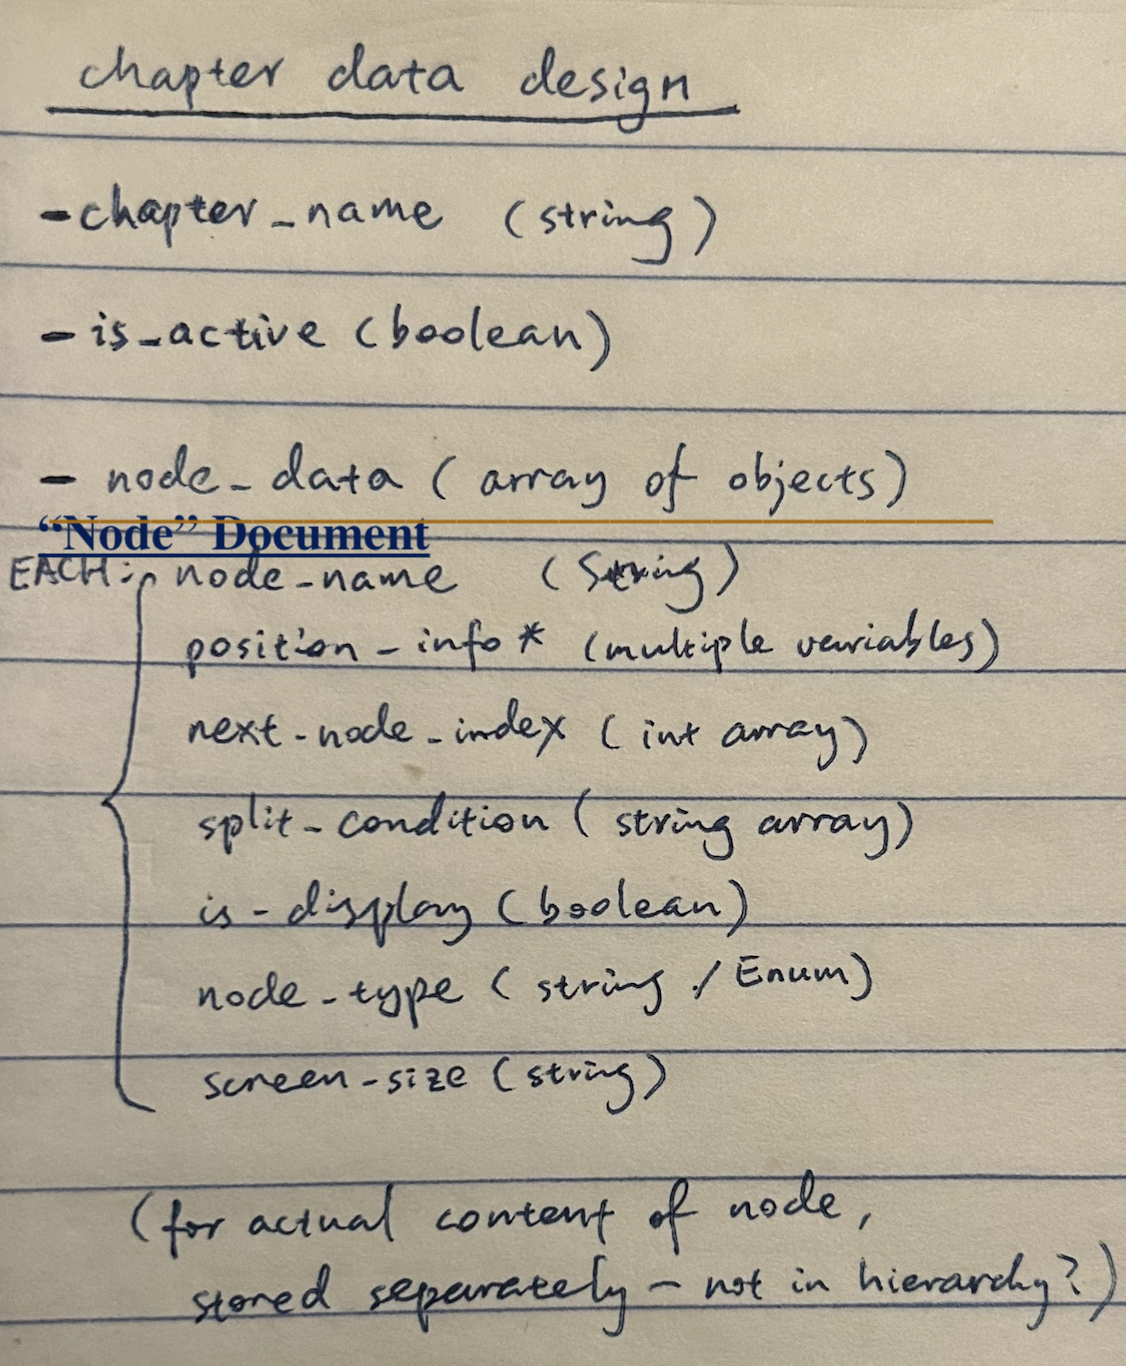 chapter data design
- chapter_name (string)
- is_active (boolean)
- node_data (array of objects)
“Node” Document
EACH: node_name (String)
position_info* (multiple variables)
next_node_index (int array)
split_condition (string array)
is_display (boolean)
node_type (string / Enum)
screen_size (string)
(for actual content of node,
stored separately - not in hierarchy?)